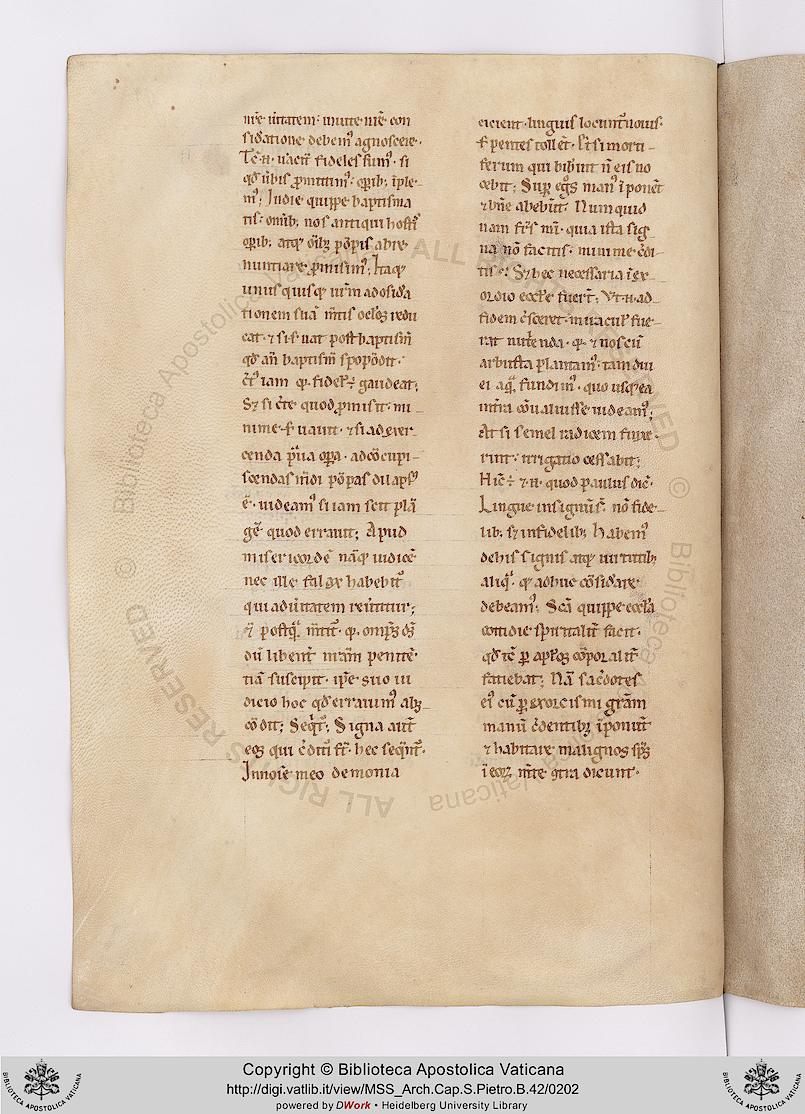 nr̄e uitatem: uiuite nr̄e con
sid̾atione debem᷒ agnoscere·
Tc̄·n· uacit̾ fideles sum᷒· si
qd̾ ū̾bis ꝓmittim᷒· oꝑib; īple-
m᷒; In die quippe baptisma
tis· om̄ib; nos antiqui hostis
oꝑib; atq; om̄ib; pōpis abre
nuntiare ꝓmisim᷒; Itaq;
unus quisq; ur̄m ad osid̾a
tionem suā m̄tis oc̄los redu
cat· ⁊ si s̾uat post baptism̄
qd̾ an̄ baptism̄ spopōdit·
c̄t᷒ iam q· fidel᷒ ÷ gaudeat;
S; si c̄te quod ꝓmisit· mi
nime s̾uauit· ⁊ si ad exer-
cenda ꝓ̄ua oꝑa· ad cōcupi-
scendas m̄di pōpas dilaps᷒
ē· uideam᷒ si iam scit plā
gē quod errauit; Apud
misericordē nāq; iudicē
nec ille fallax habebit᷒
qui ad ū̾tatem reu̾titur;
postq̄ m̄tit᷒· q· omp̄s d̄s
dū libent̾ nr̄am penitē·
tiā suscipit· ip̄e suo iu
dicio hoc qd̾ errauim᷒ abs
cōdit; Seqt᷒; Signa aut̄
eos qui c̾ditu̾i s̄t· hec seqn̄t᷒·
In noīe meo demonia
eicient· linguis locunt᷒ nouis·
s̾pentes tollēt· S; si morti-
ferum qui bibīnt n̄ eis no
cebit; Suꝑ eg̾os man᷒ īponēt
⁊ bn̄e abebūt· Numquid
nam fr̄s mi· quia ista sig-
na nō facitis· minime c̾di-
tis? S; hec necessaria ī ex
ordio eccl̄e fuert̄; Vt·n· ad
fidem c̾sceret· miracul̾ fue-
rat nut̾enda· q· ⁊ nos cū
arbusta plantam᷒· tam diu
ei aq̄ fundim᷒· quo usq; ea
int̾ra cōualuisse uideam᷒;
At si semel radicem fixe-
rint· irrigatio cessabit;
Hīc ÷ ·n· quod paulus dic̄·
Lingue in signūs̄· nō fide-
lib; s; infidelib; Habem᷒
de his signis atq; uirtutib;
aliq̄· q adhuc cōsid̾are
debeam᷒; Scā quippe eccl̄a
cotidie sp̄italit̾ facit·
qd̾ tc̄ ꝑ apl̄os corporalit̾
faciebat; Nā sac̾dotes
ei᷒ cū ꝑ exorcismi gr̄am
manū c̾dentib; īponūt
⁊ habitare malignos sp̄s
ī eor̄ m̄te ꝯtra dicunt·
Copyright © Biblioteca Apostolica Vaticana
http://digi.vatlib.it/view/MSS_Arch.Cap.S.Pietro.B.42/0202
powered by DWork • Heidelberg University Library